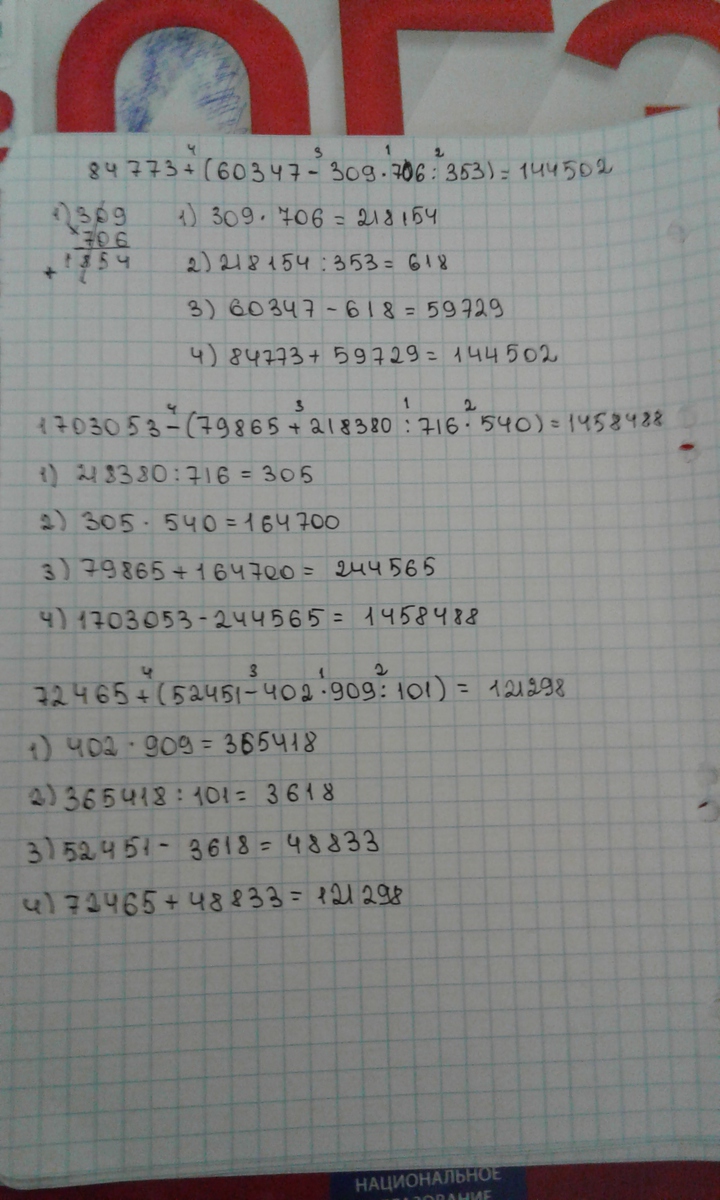 ОГЭ
84773+(60347-309·706:353)=144502
4 3 1 2
1) 309
×706
1854
+
1) 309·706=218154
2) 218154:353=618
3) 60347-618=59729
4) 84773+59729=144502
4 3 1 2
1703053-(79865+218380:716·540)=1458488
1) 218380:716=305
2) 305·540=164700
3) 79865+164700=244565
4) 1703053-244565=1458488
4 3 1 2
72465+(52451-402·909:101)=121298
1) 402·909=365418
2) 365418:101=3618
3) 52451-3618=48833
4) 72465+48833=121298
НАЦИОНАЛЬНОЕ